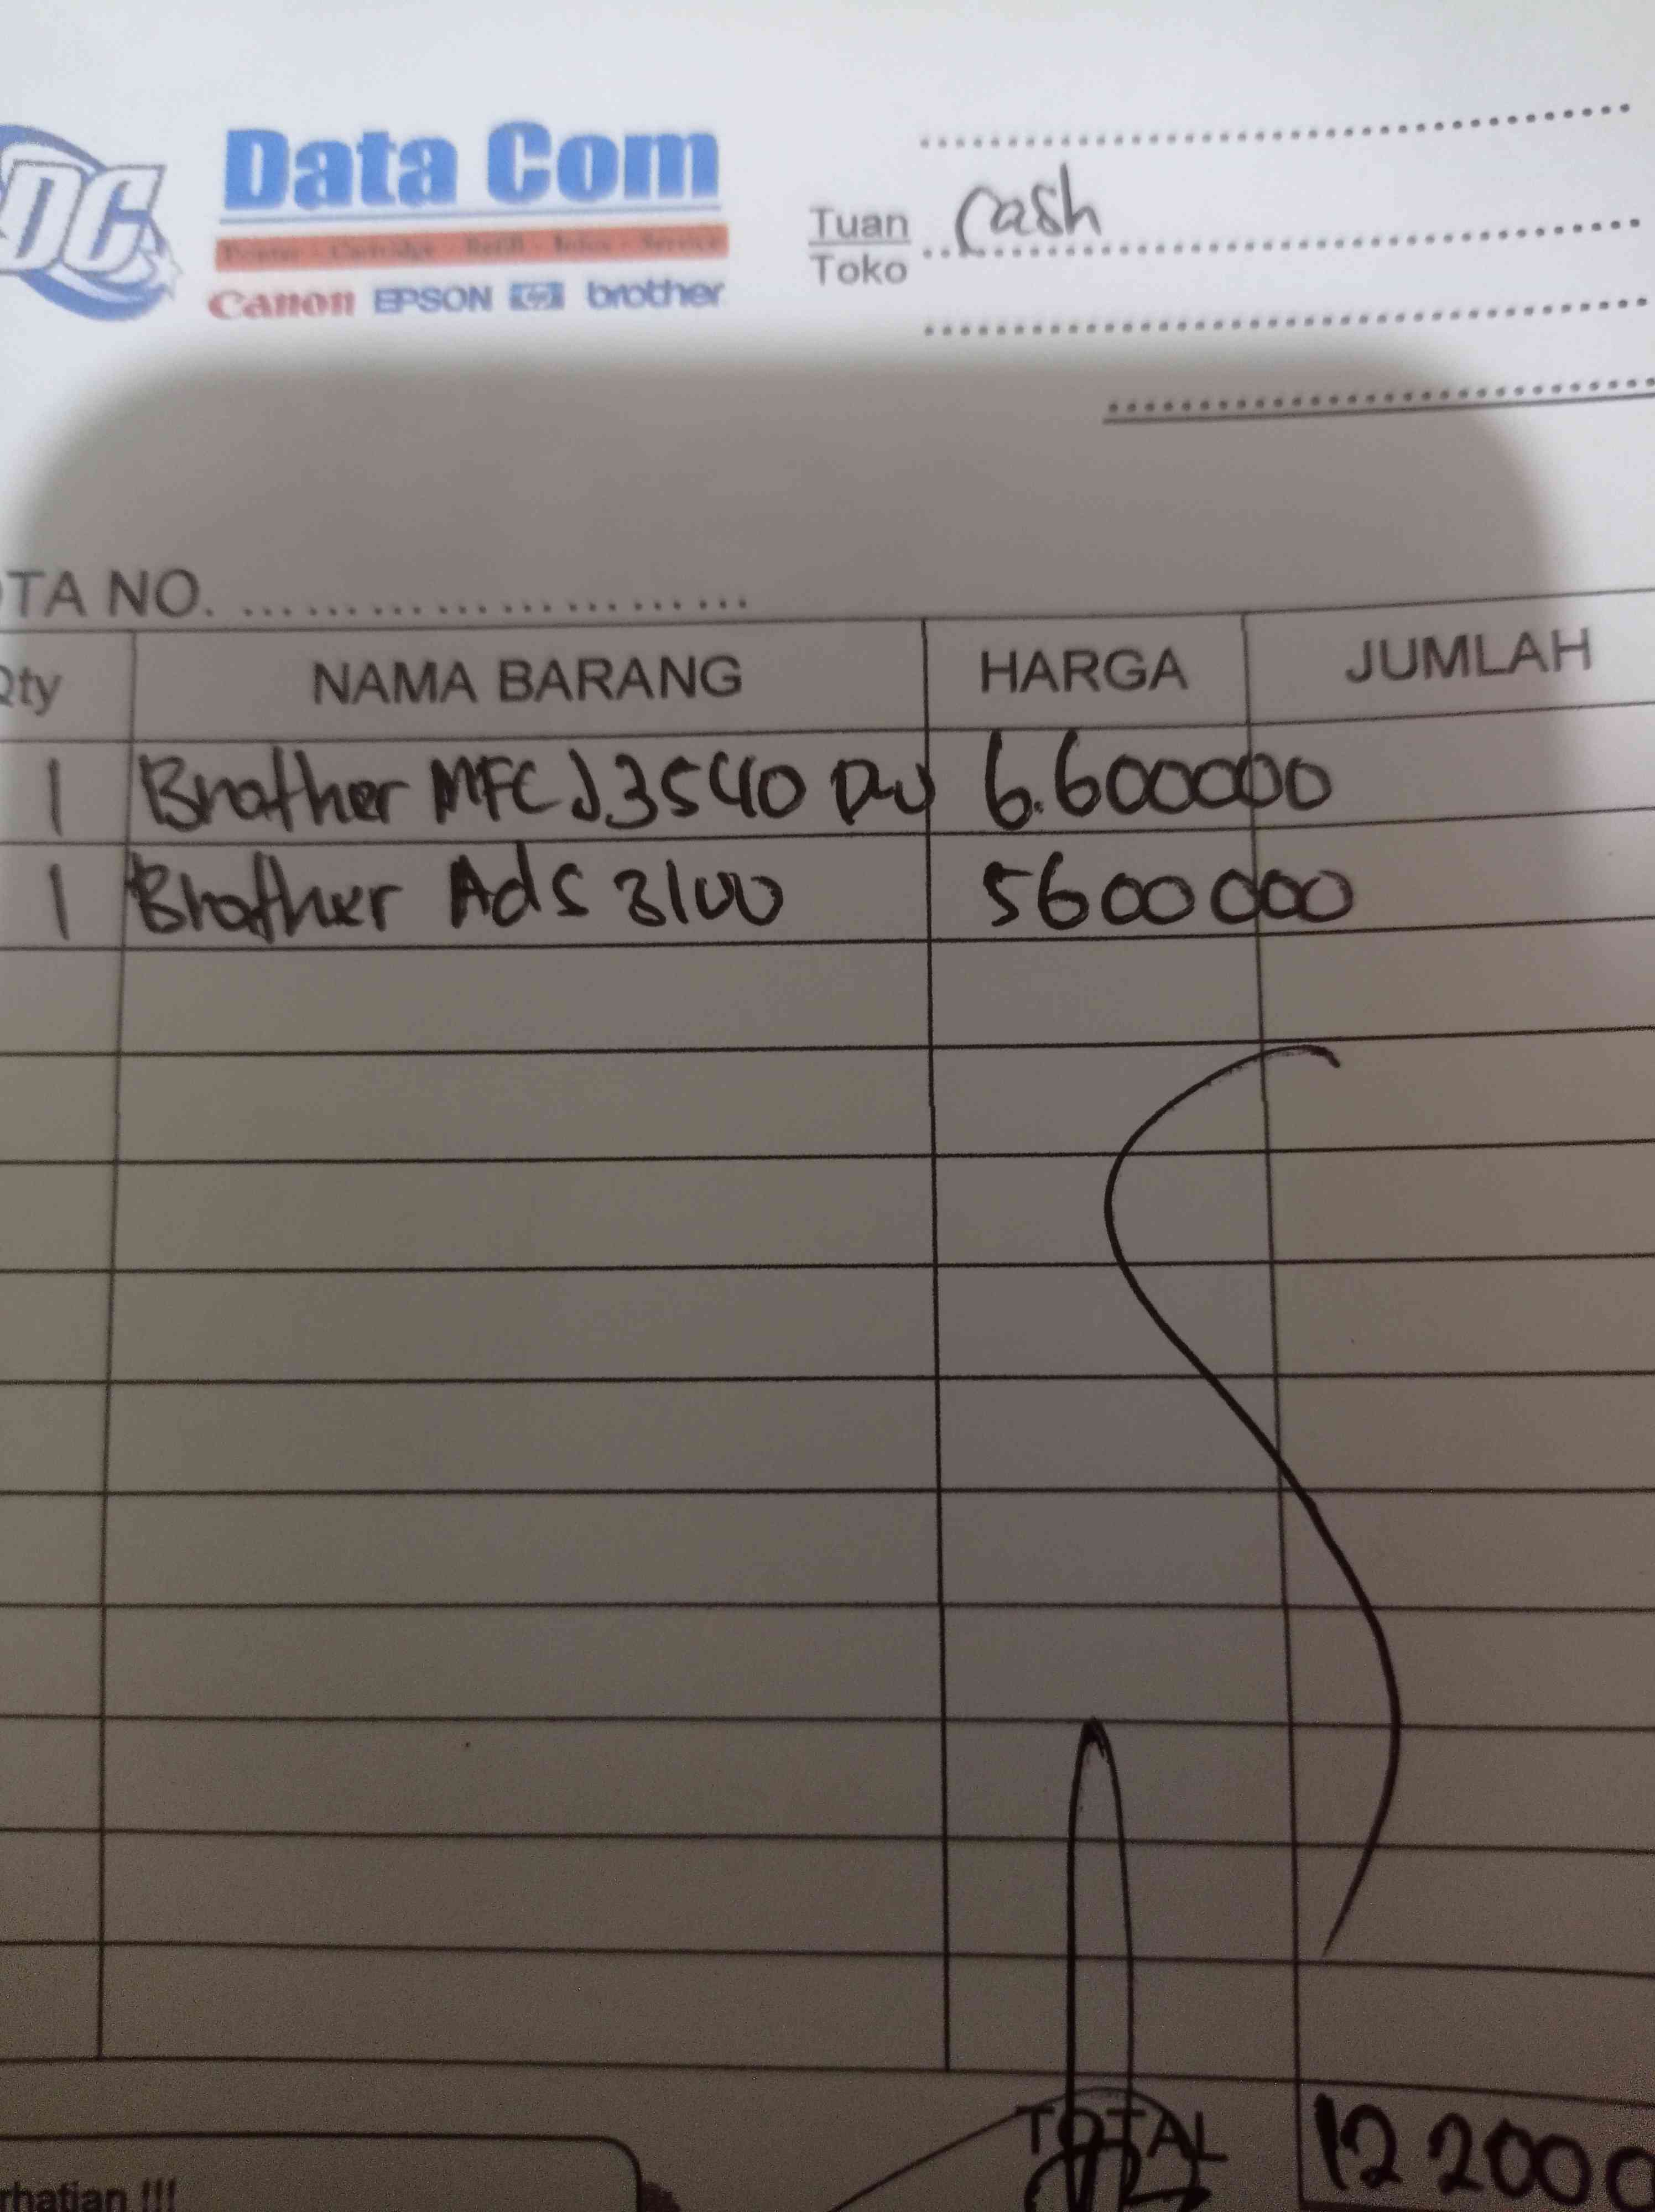 DC
Data Com
Printer - Cartridge - Refill - Infus - Service
Canon EPSON hp brother
Tuan Cash
Toko
TA NO. ........................
Qty NAMA BARANG HARGA JUMLAH
1 Brother MFC J.3540 DW 6.600000
1 Brother Ads 3100 5600 000
TOTAL 12 2000
rhatian !!!